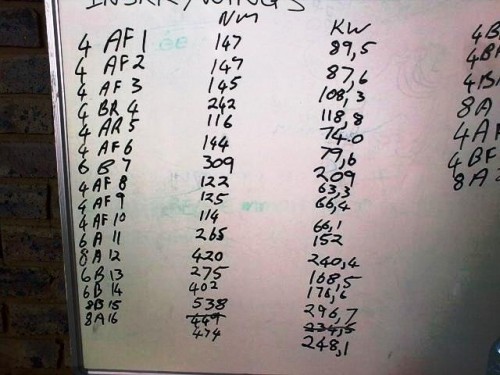 INSKRYWINGS
Nm KW
4 AF 1 147 89,5
4 AF 2 147 87,6
4 AF 3 145 108,3
4 BR 4 242 118,8
4 AR 5 116 74.0
4 AF 6 144 79,6
6 B 7 309 209
4 AF 8 122 63,3
4 AF 9 125 66,4
4 AF 10 114 66,1
6 A 11 265 152
8 A 12 420 240,4
6 B 13 275 168,5
6 B 14 402 176,6
8 B 15 538 296,7
8 A 16 449 234,5
474 248,1
4 B
4 B
4 B
8 A
4 A
4 BF
8 A